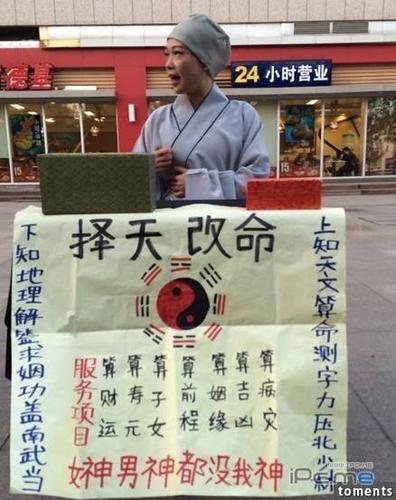 德基
24 小时营业
择天改命
上知天文算命测字力压北少林
下知地理解签求姻功盖南武当
服务项目
算财运
算寿元
算子女
算前程
算姻缘
算吉凶
算病灾
女神男神都没我神
toments